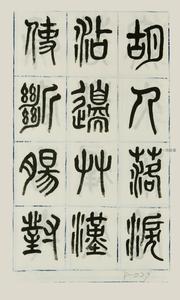 胡人落淚
沾邊艸漢
使斷腸對
P-029